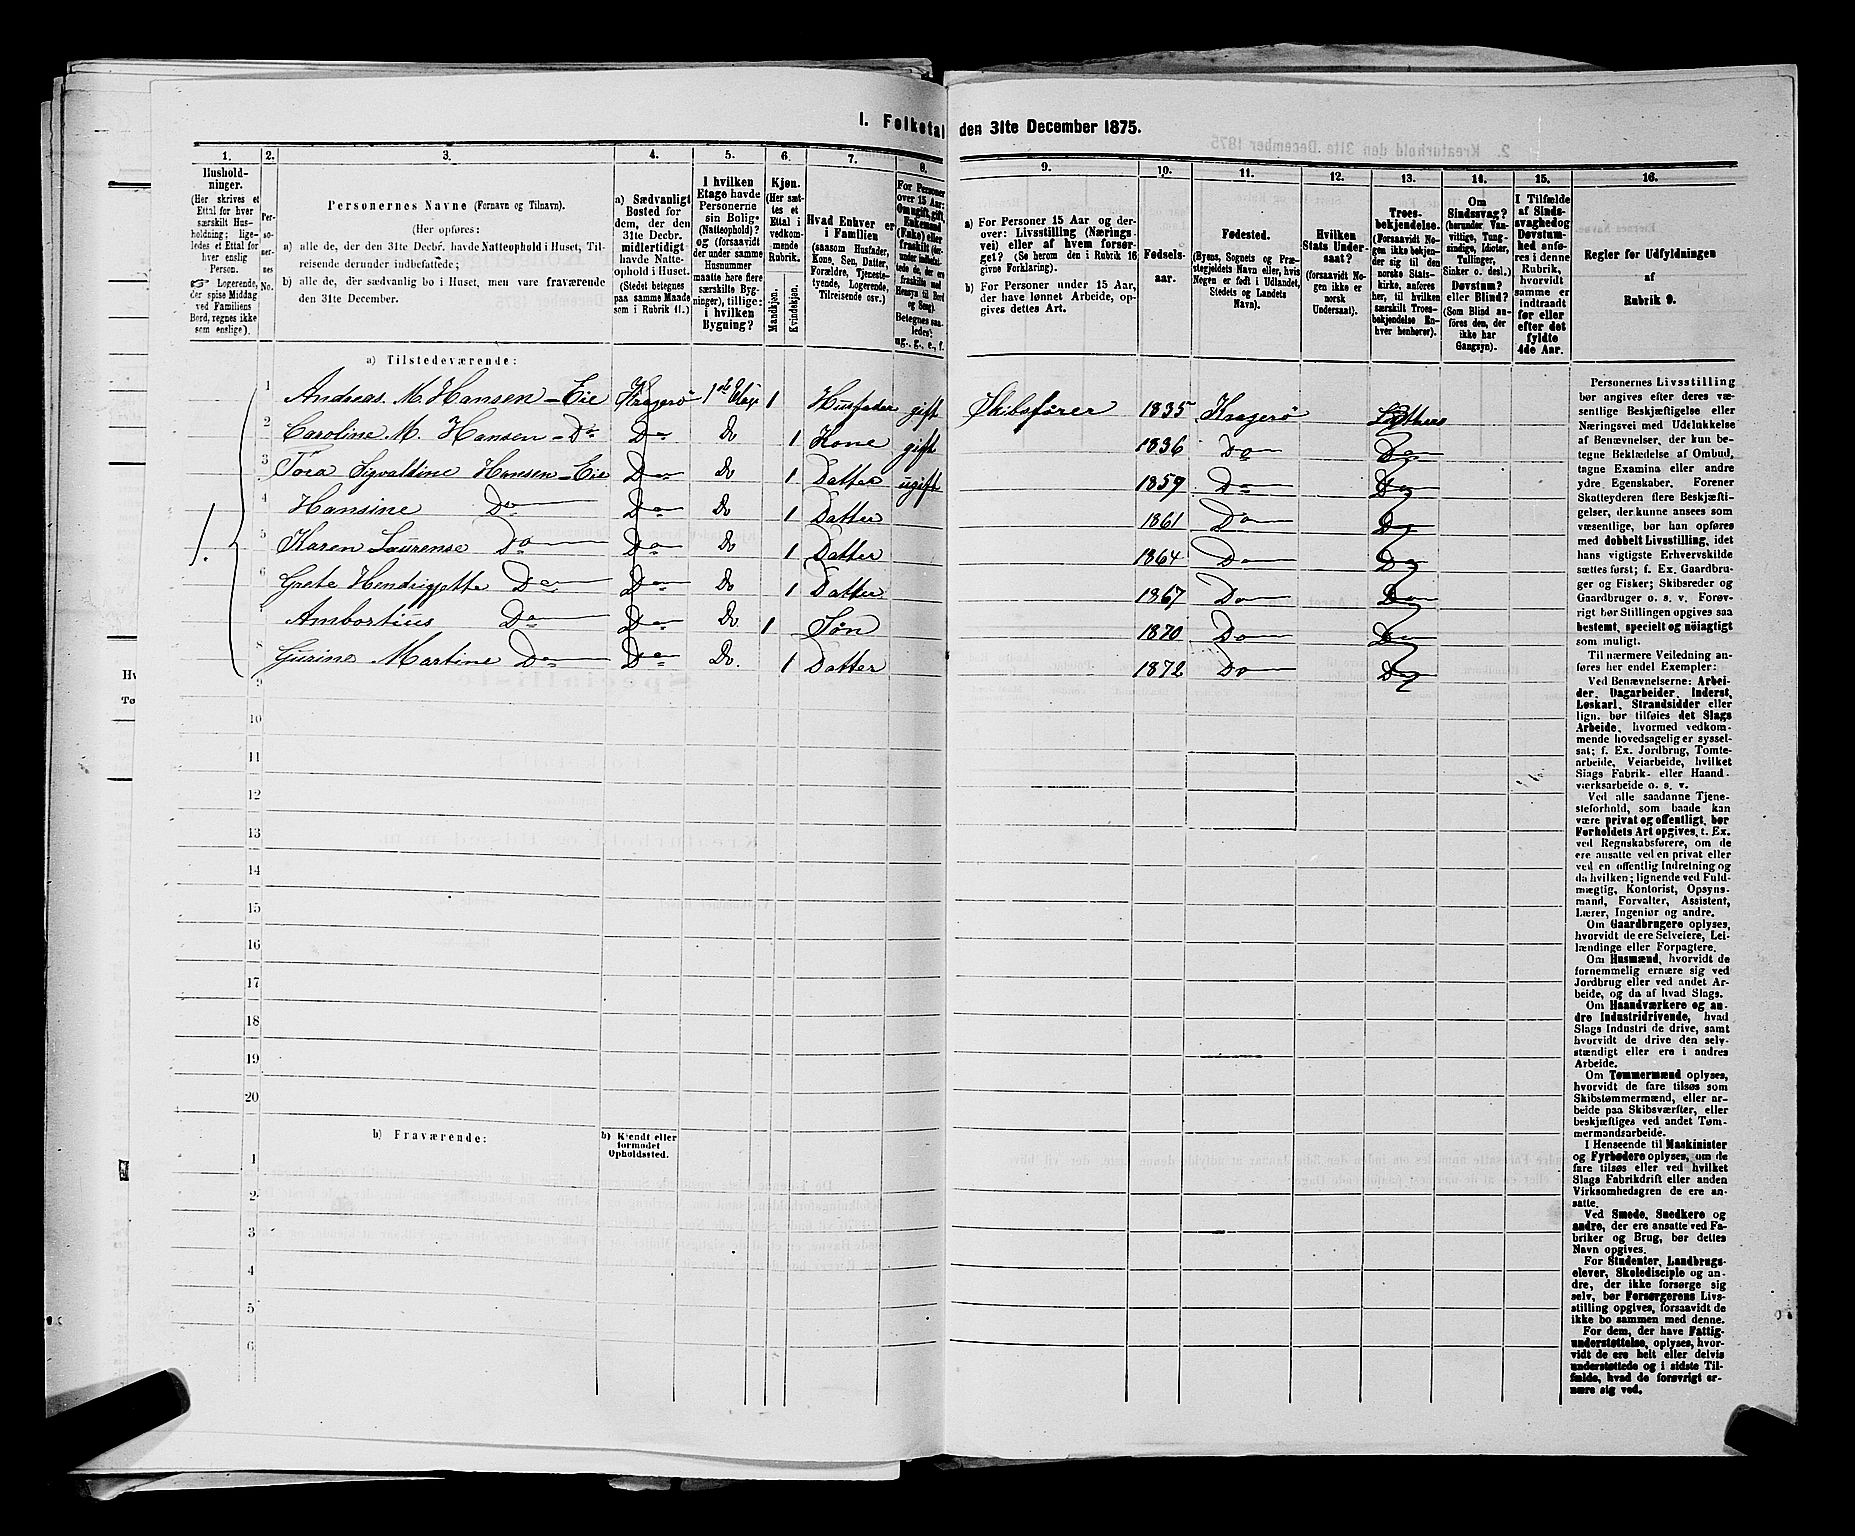 1. Folketal den 31te December 1875.
1. 2. 3. 4. 5. 6. 7. 8. 9. 10. 11. 12. 13. 14. 15. 16.
Hushold-
ninger.
(Her skrives et
Ettal for hver
særskilt Hus-
holdning; lige-
ledes et Ettal for
hver enslig
Person.
☞ Logerende,
der spise Middag
ved Familiens
Bord, regnes ikke
som enslige).
Per-
so-
ner-
nes
No.
Personernes Navne (Fornavn og Tilnavn).
(Her opføres:
a) alle de, der den 31te Decbr. havde Natteophold i Huset, Til-
reisende derunder indbefattede;
b) alle de, der sædvanlig bo i Huset, men vare fraværende
den 31te December.
a) Sædvanligt
Bosted for
dem, der den
31te Decbr.
midlertidigt
havde Natte-
ophold i Huset.
(Stedet betegnes
paa samme Maade
som i Rubrik 11.)
I hvilken
Etage havde
Personerne
sin Bolig
(Natteophold)?
og (forsaavidt
der under samme
Husnummer
maatte høre flere
særskilte Byg-
ninger), tillige:
i hvilken
Bygning?
Kjøn.
(Her sæt-
tes et
Ettal i
vedkom-
mende
Rubrik.
Mandkjøn.
Kvindekjøn.
Hvad Enhver er
i Familien
(saasom Husfader,
Kone, Søn, Datter,
Forældre, Tjeneste-
tyende, Logerende,
Tilreisende osv.)
For Personer
over 15 Aar:
Om ugift, gift,
Enkemand
(Enke) eller
fraskilt
Betegnes saa-
ledes:
ug., g., e., f.
a) For Personer 15 Aar og der-
over: Livsstilling (Nærings-
vei) eller af hvem forsør-
get? (Se herom den i Rubrik 16
givne Forklaring).
b) For Personer under 15 Aar,
der have lønnet Arbeide, op-
gives dettes Art.
Fødsels-
aar.
Fødested.
(Byens, Sognets og Præ-
stegjeldets Navn eller, hvis
Nogen er født i Udlandet,
Stedets og Landets
Navn).
Hvilken
Stats Under-
saat?
(forsaavidt No-
gen ikke er
norsk
Undersaat).
Troes-
bekjendelse.
(Forsaavidt No-
gen ikke bekjen-
der sig til den
norske Stats-
kirke, anføres
her, til hvilken
særskilt Troes-
bekjendelse En-
hver henhører).
Om
Sindssvag?
(herunder Van-
vittige, Tung-
sindige, Idioter,
Tullinger,
Sinker o. desl.)
Døvstum?
eller Blind?
(Som Blind an-
føres den, der
ikke har
Gangsyn).
I Tilfælde
af Sinds-
svaghed og
Døvstum-
hed anfø-
res i denne
Rubrik,
hvorvidt
samme er
indtraadt
før eller
efter det
fyldte
4de Aar.
Regler for Udfyldningen
af
Rubrik 9.
a) Tilstedeværende:
1 Andreas M Hansen – Eie Kragerø 1ste Etage 1 Husfader gift Skibsfører 1835 Kragerø
2 Caroline M. Hansen – Do Do Do 1 Kone gift 1836 Do Do
3 Tora Sigvaldine Hansen – Eie Do Do 1 Datter ugift 1859 Do Do
4 Hansine Do Do Do 1 Datter 1861 Do Do
1. 5 Karen Laurense Do Do Do 1 Datter 1864 Do Do
6 Grete Hendrigjette Do Do Do 1 Datter 1867 Do Do
7 Ambortius Do Do Do 1 Søn 1870 Do Do
8 Gurine Martine Do Do Do. 1 Datter 1872 Do Do
9
10
11
12
13
14
15
16
17
18
19
20
b) Fraværende:
b) Kjendt eller
formodet
Opholdssted.
1
2
3
4
5
6
Personernes Livsstilling
bør angives efter deres væ-
sentlige Beskjæftigelse eller
Næringsvei med Udelukkelse
af Benævnelser, der kun be-
tegne Beklædelse af Ombud,
tagne Examina eller andre
ydre Egenskaber. Forener
Skatteyderen flere Beskjæfti-
gelser, der kunne ansees som
væsentlige, bør han opføres
med dobbelt Livsstilling, idet
hans vigtigste Erhvervskilde
sættes først; f. Ex. Gaardbru-
ger og Fisker; Skibsreder og
Gaardbruger o. s. v. Forøv-
rigt bør Stillingen opgives saa
bestemt, specielt og nøiagtigt
som muligt.
Til nærmere Veiledning an-
føres her endel Exempler:
Ved Benævnelserne: Arbei-
der, Dagarbeider, Inderst,
Løskarl, Strandsidder eller
lign. bør tilføies det Slags
Arbeide, hvormed vedkom-
mende hovedsagelig er syssel-
sat; f. Ex. Jordbrug, Tomte-
arbeide, Veiarbeide, hvilket
Slags Fabrik- eller Haand-
værksarbeide o. s. v.
Ved alle saadanne Tjene-
steforhold, som baade kan
være privat og offentligt, bør
Forholdets Art opgives, t. Ex.
ved Regnskabsførere, om de
ere ansatte ved en privat eller
ved en offentlig Indretning og
da hvilken; lignende ved Fuld-
mægtig, Kontorist, Opsyns-
mand, Forvalter, Assistent,
Lærer, Ingeniør og andre.
Om Gaardbrugere oplyses,
hvorvidt de ere Selveiere, Lei-
lændinge eller Forpagtere.
Om Husmænd, hvorvidt de
fornemmelig ernære sig ved
Jordbrug eller ved andet Ar-
beide, og da af hvad Slags.
Om Haandværkere og an-
dre Industridrivende, hvad
Slags Industri de drive, samt
hvorvidt de drive den selv-
stændigt eller ere i andres
Arbeide.
Om Tømmermænd oplyses,
hvorvidt de fare tilsøs som
Skibstømmermænd, eller ar-
beide paa Skibsværfter, eller
beskjæftiges ved andet Tøm-
mermandsarbeide.
I Henseende til Maskinister
og Fyrbødere oplyses, om de
fare tilsøs eller ved hvilket
Slags Fabrikdrift eller anden
Virksomhedsgren de ere an-
satte.
Ved Smede, Snedkere og
andre, der ere ansatte ved Fa-
briker og Brug, bør dettes
Navn opgives.
For Studenter, Landbrugs-
elever, Skoledisciple og an-
dre, der ikke forsørge sig
selv, bør Forsørgerens Livs-
stilling opgives, forsaavidt de
ikke bo sammen med denne.
For dem, der have Fattig-
understøttelse, oplyses, hvor-
vidt de ere helt eller delvis
understøttede og i sidste Til-
fælde, hvad de forøvrigt er-
nære sig ved.